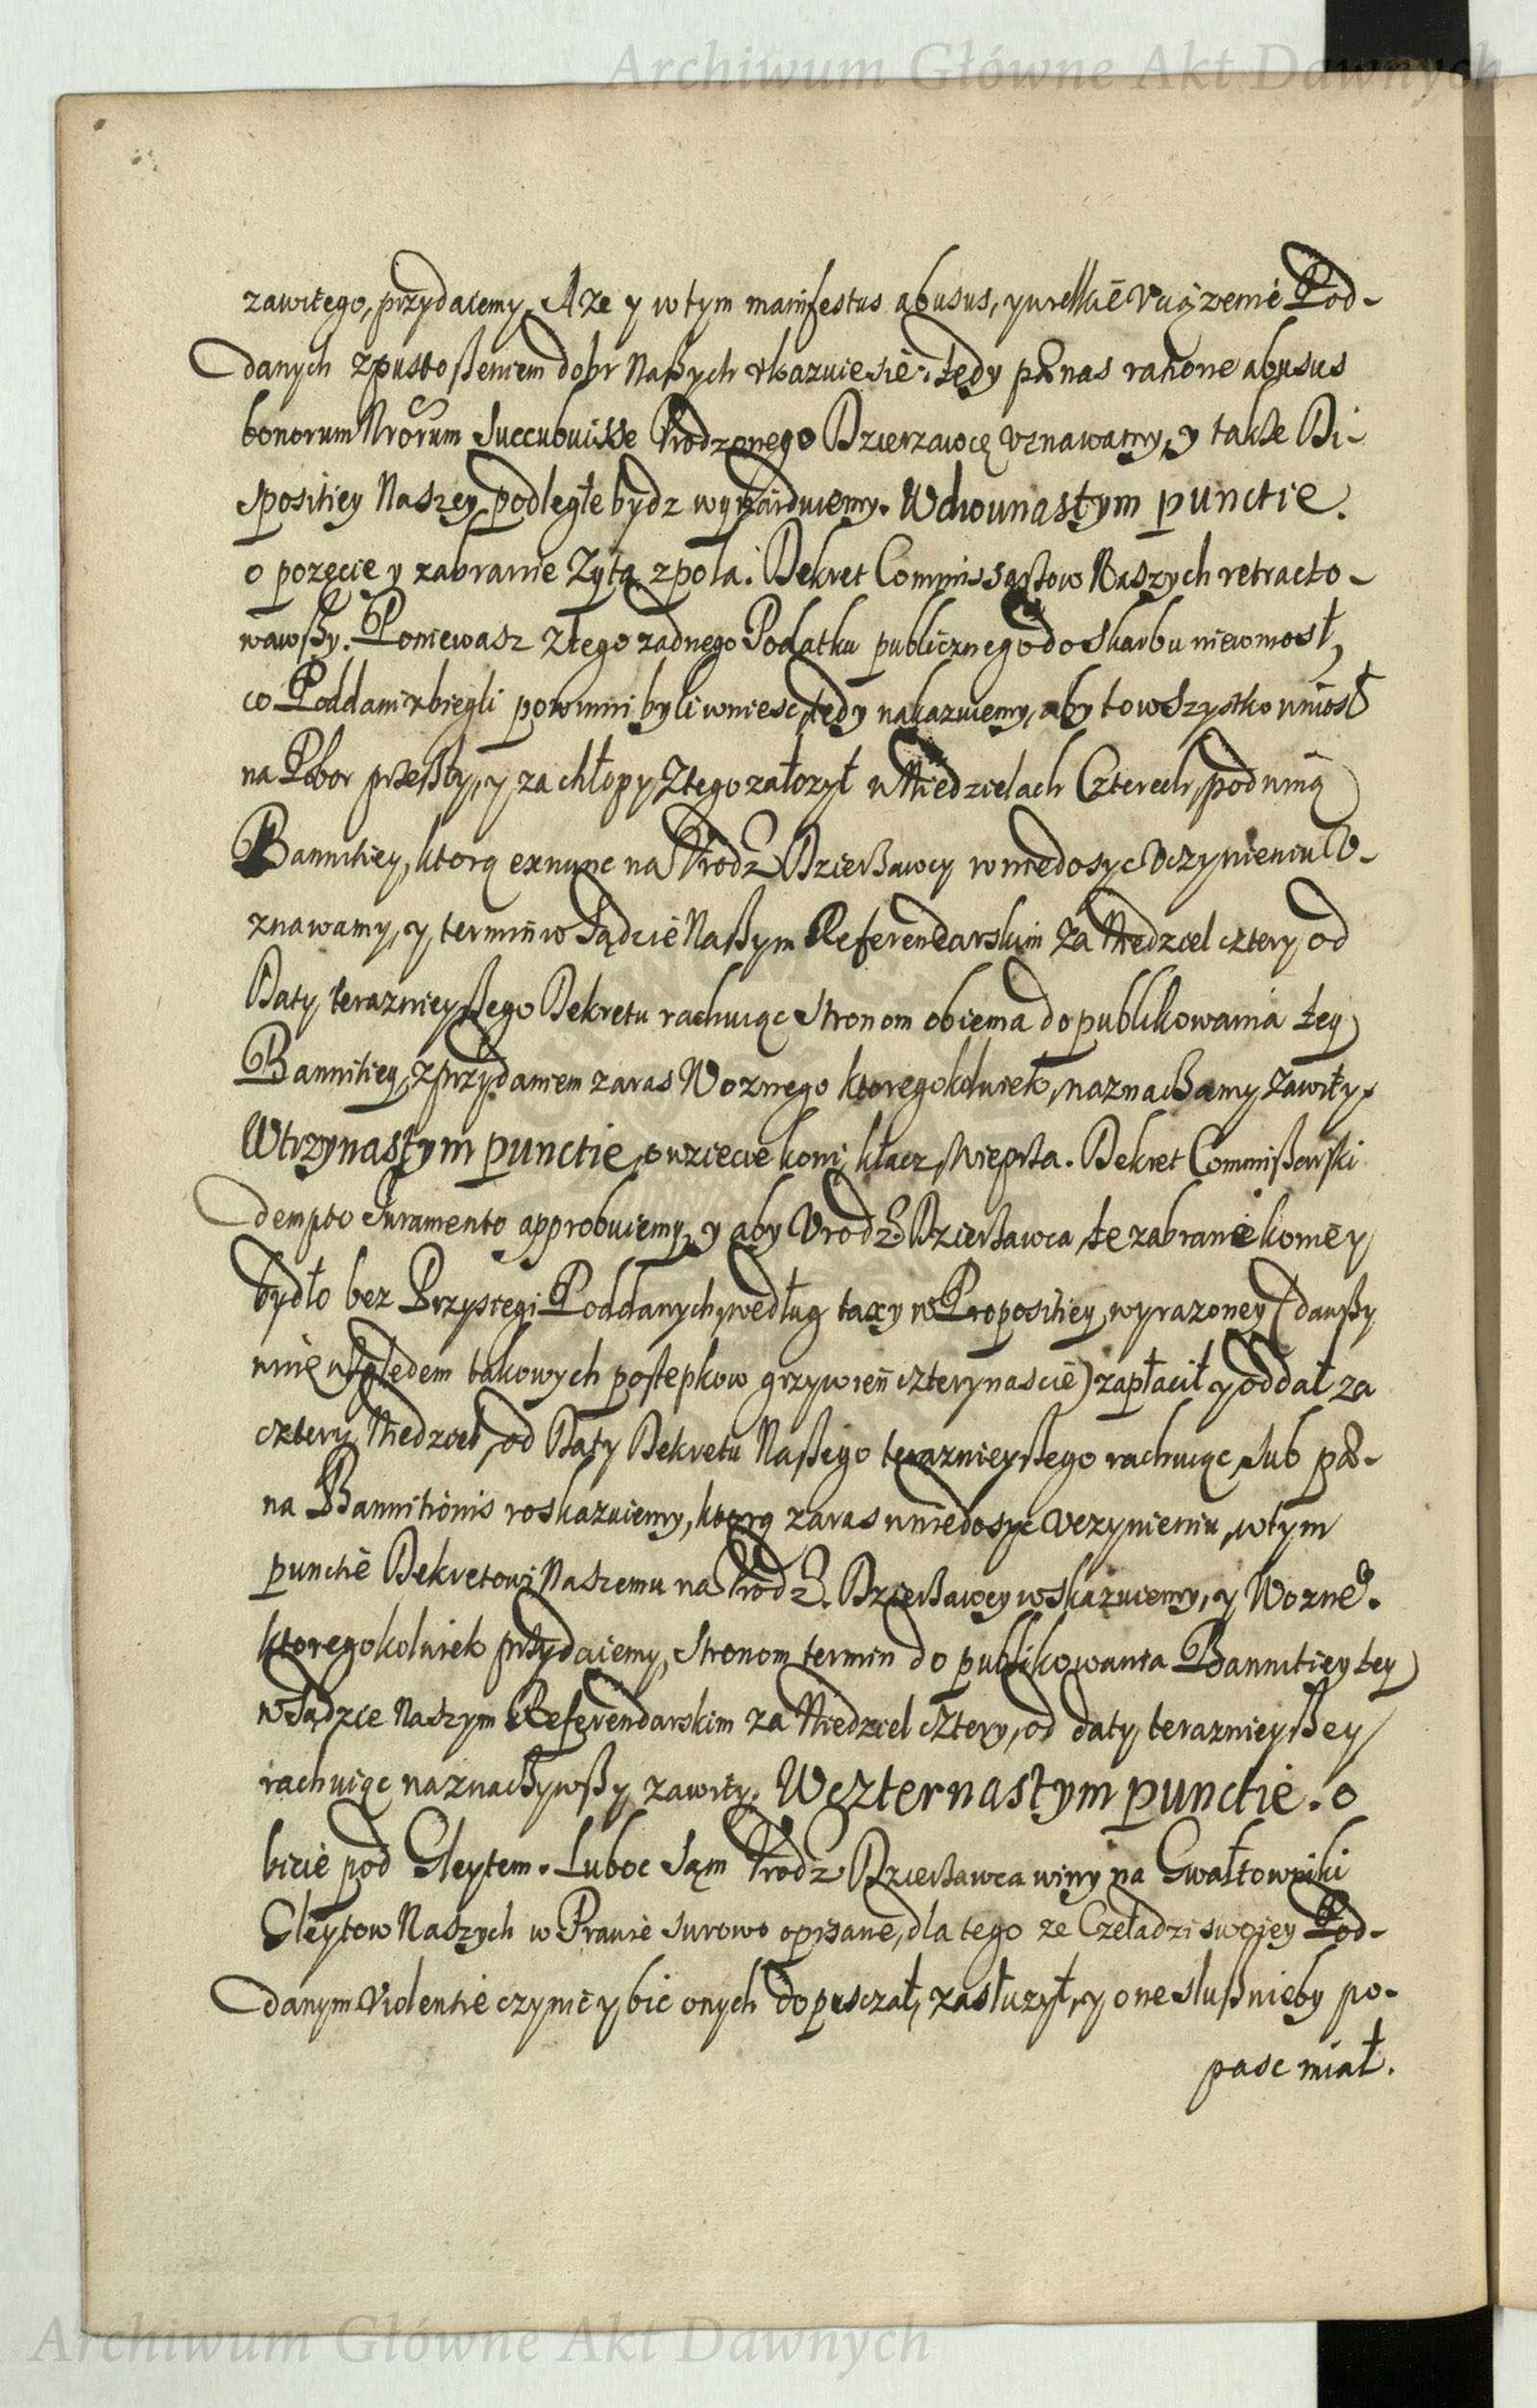 Archiwum Główne Akt Dawnych
zawitego, przydaiemy. A ze y w tym manifestus abusus, y wielkie Vciązenie Pod-
danych z pustoßeniem dobr Naßych vkazuie sie: tedy pœnas ratione abusus
bonorum Nrorum succubuisse Vrodzonego Dzierzawcę vznawamy, y takze Di-
spositiey Naszey podległe bydz wynaiduiemy. W dwunastym punctie.
o pozęcie y zabranie Zyta z pola. Dekret Commissarzow Naszych retracto-
wawßy. Poniewasz z tego zadnego Podatku publicznego do Skarbu nie wniosł,
co Poddani zbiegli powinni byli wniesc, tedy nakazuiemy, aby to wszystko wniosł
na Pobor przeßły, y za chłopy z tego załozył w Niedzielach Czterech, pod winą
Bannitiey, ktorą ex nunc na Vrodz. Dzierßawcy w niedosyc Vczynieniu V-
znawamy, y termin w Sądzie Naßym Referendarskim za Niedziel cztery od
Daty terazniey ßego Dekretu rachuiąc Stronom obiema do publikowania tey
Bannitiey, z przydaniem zaras Woznego ktoregokolwiek, naznaßamy zawity.
W trzynastym punctie, o wziecie koni, kłacz, Wieprza. Dekret Commißarski
dempto Iuramento approbuiemy, y aby Vrodz. Dzierßawca te zabrane konie y
bydło bez Przysiegi Poddanych, według taxy w Propositiey wyrazoney (dawßy
winę względem takowych postepkow grzywien czterynascie) zapłacił y oddał za
cztery Niedziel, od Daty Dekretu Naßego teraznieyßego rachuiąc, sub pœ-
na Bannitionis roskazuiemy, ktorą zaras w niedosyc Vczynieniu, w tym
punctie Dekretowi Naszemu na Vrodz. Dzierßawcy wskazuiemy, y Wozneo.
ktoregokolwiek przydaiemy, Stronom termin do publikowania Bannitiey tey
w Sądzie Naszym Referendarskim za Niedziel cztery, od daty teraznieyßey
rachuiąc naznaczywßy zawity. W czternastym punctie. o
bicie pod Gleytem. Luboc sam Vrodz Dzierßawca winy na Gwałtowniki
Gleytow Naszych w Prawie surowo opisane, dla tego ze Czeladzi swoiey Pod-
danym Violentie czynic y bic onych dopusczał, zasłuzył, y one słußnie by po-
pasc miał.
Archiwum Główne Akt Dawnych